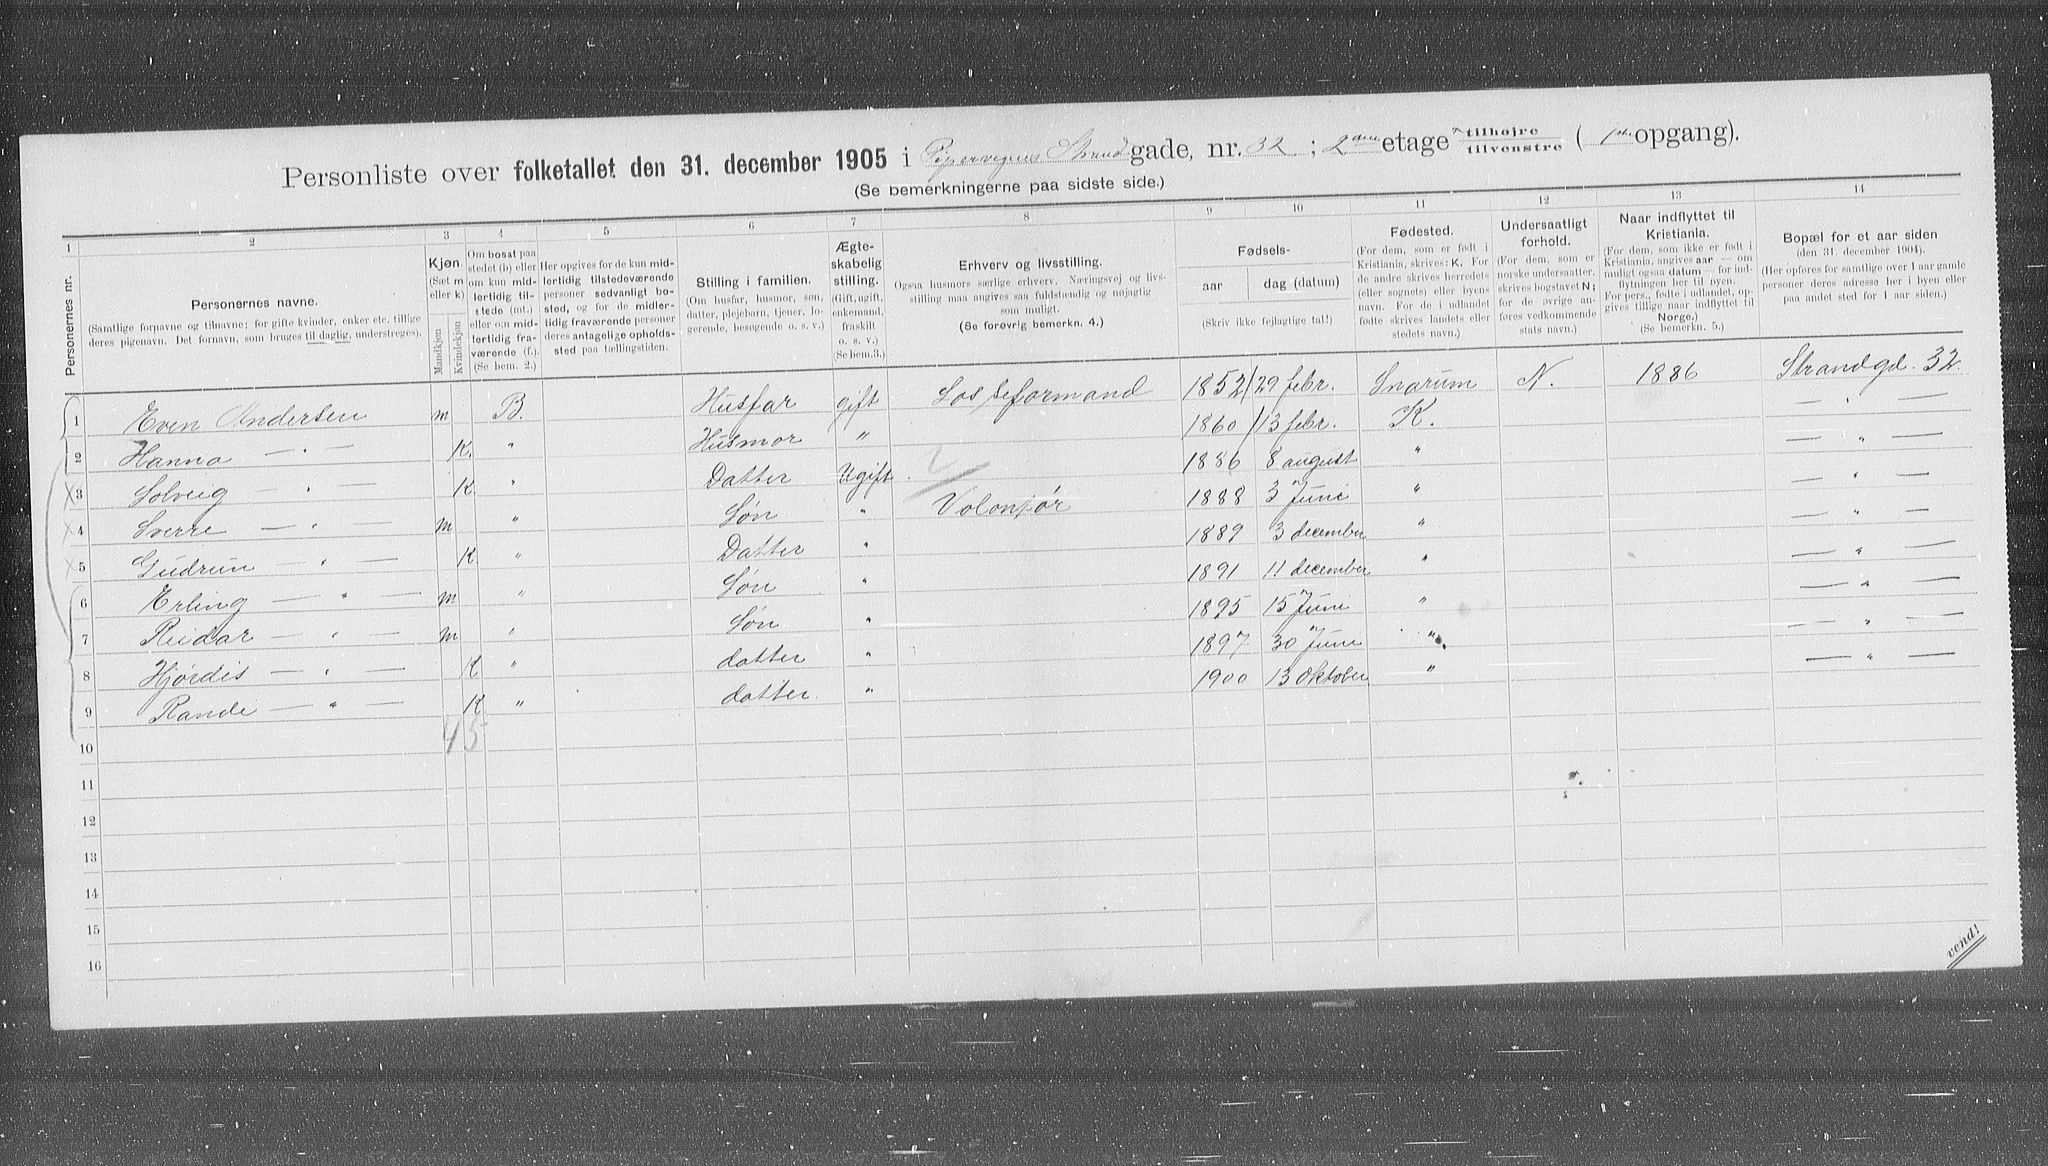 Personliste over folketallet den 31. december 1905 i Pipervigens Strandgade, nr. 32 ; 2den etage tilhøjre tilvenstre ( 1ste opgang).
(Se bemerkningerne paa sidste side.)
1 2 3 4 5 6 7 8 9 10 11 12 13 14
Personernes nr.
Personernes navne.
(Samtlige fornavne og tilnavne; for gifte kvinder, enker etc. tillige deres pigenavn. Det fornavn, som bruges til daglig, understreges).
Kjøn.
(Sæt m eller k)
Mandkjøn Kvindekjøn
Om bosat paa stedet (b) eller om kun midlertidig tilstede (mt.) eller om midlertidig fraværende (f.). (Se bem. 2.)
Her opgives for de kun midlertidig tilstedeværende personer sedvanligt bosted, og for de midlertidig fraværende personer deres antagelige opholdssted paa tællingstiden.
Stilling i familien.
(Om husfar, husmor, søn, datter, plejebarn, tjener, logerende, besøgende o. s. v.)
Ægteskabelig stilling.
(Gift, ugift, enkemand, fraskilt o. s. v.) (Se bem.3.)
Erhverv og livsstilling.
Ogsaa husmors særlige erhverv. Næringsvej og livsstilling maa angives saa fuldstændig og nøjagtig som muligt.
(Se forøvrig bemerkn. 4.)
Fødsels-
aar dag (datum)
(Skriv ikke fejlagtige tal!)
Fødested.
(For dem, som er født i Kristiania, skrives: K. For de andre skrives herredets (eller sognets) eller byens navn. For de i udlandet fødte skrives landets eller stedets navn.)
Undersaatligt forhold.
(For dem, som er norske undersaatter, skrives bogstavet N; for de øvrige anføres vedkommende stats navn.)
Naar indflyttet til Kristiania.
(For dem, som ikke er født i Kristiania, angives aar — om muligt ogsaa datum — for indflytningen her til byen. For pers., fødte i udlandet, opgives tillige naar indflyttet til Norge.)
(Se bemerkn. 5.)
Bopæl for et aar siden
(den 31. december 1904).
(Her opføres for samtlige over 1 aar gamle personer deres adresse her i byen eller paa andet sted for 1 aar siden.)
1 Even Andersen m B. Husfar gift Losseformand 1852 29 febr. Snarum N. 1886 Strandgd. 32
2 Hanna — " — K. " Husmor " 1860 13 febr. K. — " —
3 Solveig — " — K " Datter Ugift 1886 8 august " — " —
4 Sverre — " — m " Søn " Volontør 1888 3 Juni " — " —
5 Gudrun — " — K " Datter " 1889 3 december " — " —
6 Erling — " — m " Søn " 1891 11 december " — " —
7 Reidar — " — m " Søn " 1895 15 Juni " — " —
8 Hjørdis — " — K " datter " 1897 30 Juni " — " —
9 Rande — " — K " datter " 1900 13 Oktober " — " —
10 4 5
11
12
13
14
15
16
vend!